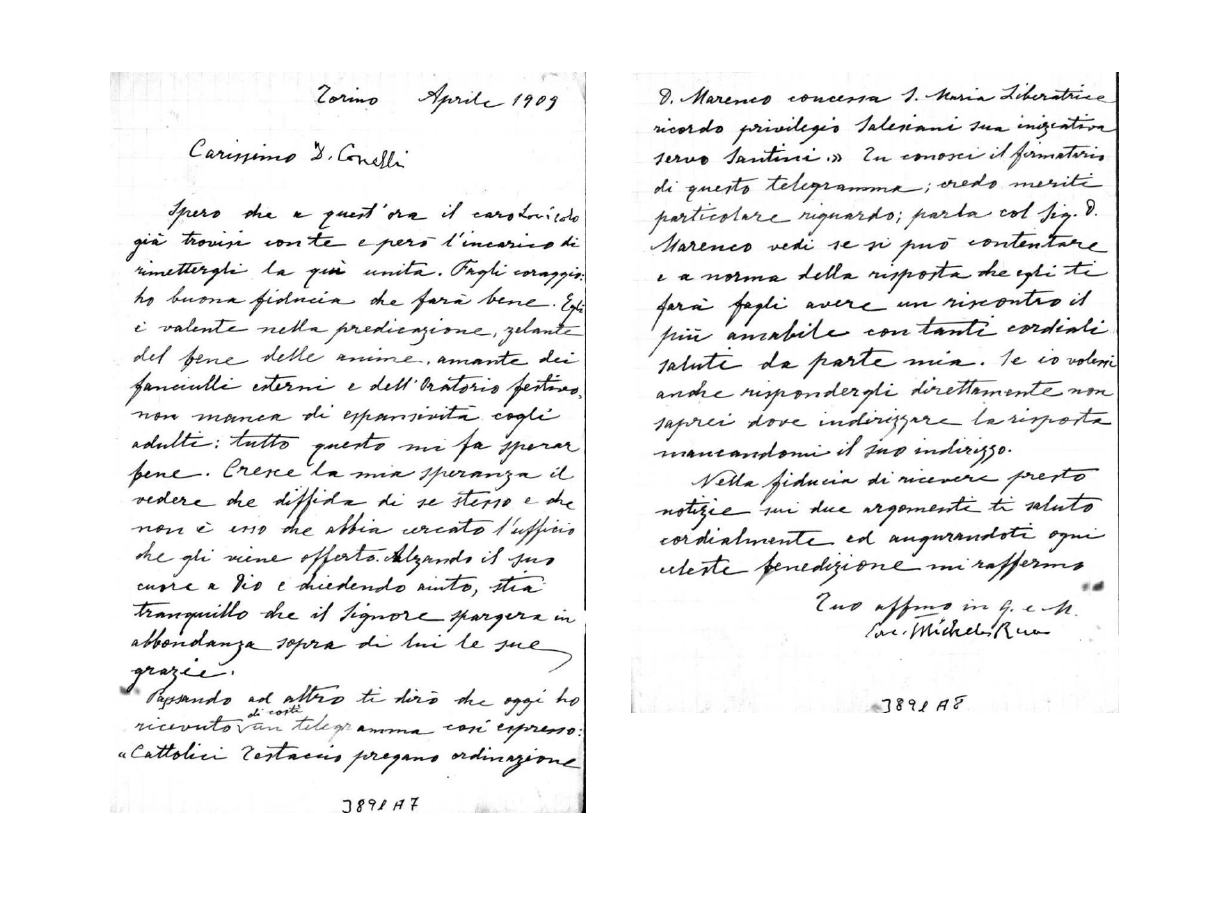 Torino Aprile 1909
Carissimo D. Conelli
Spero che a quest'ora il caro
già trovisi con te e però l'incarico di
rimettergli la qui unita. Fagli coraggio:
ho buona fiducia che farà bene. Egli
è valente nella predicazione, zelante
del bene delle anime, amante dei
fanciulli esterni e dell'Oratorio festivo,
non manca di espansività cogli
adulti: tutto questo mi fa sperar
bene. Cresce la mia speranza il
vedere che diffida di se stesso e che
non è esso che abbia cercato l'ufficio
che gli viene offerto. Alzando il suo
cuore a Dio e chiedendo aiuto, stia
tranquillo che il Signore spargerà in
abbondanza sopra di lui le sue
grazie.
Passando ad altro ti dirò che oggi ho
ricevuto di costì un telegramma così espresso:
"Cattolici Testaccio pregano ordinazione
3891 A7
D. Marenco concessa S. Maria Liberatrice
ricordo privilegio Salesiani sua iniziativa
servo Santini.» Tu conosci il firmatario
di questo telegramma; credo meriti
particolare riguardo; parla col Sig. D.
Marenco vedi se si può contentare
e a norma della risposta che egli ti
farà fagli avere un riscontro il
più amabile con tanti cordiali
saluti da parte mia. Se io volessi
anche rispondergli direttamente non
saprei dove indirizzare la risposta
mancandomi il suo indirizzo.
Nella fiducia di ricevere presto
notizie sui due argomenti ti saluto
cordialmente ed augurandoti ogni
celeste benedizione mi raffermo
Tuo affmo in G. e M.
Sac. Michele Rua
3891 A8